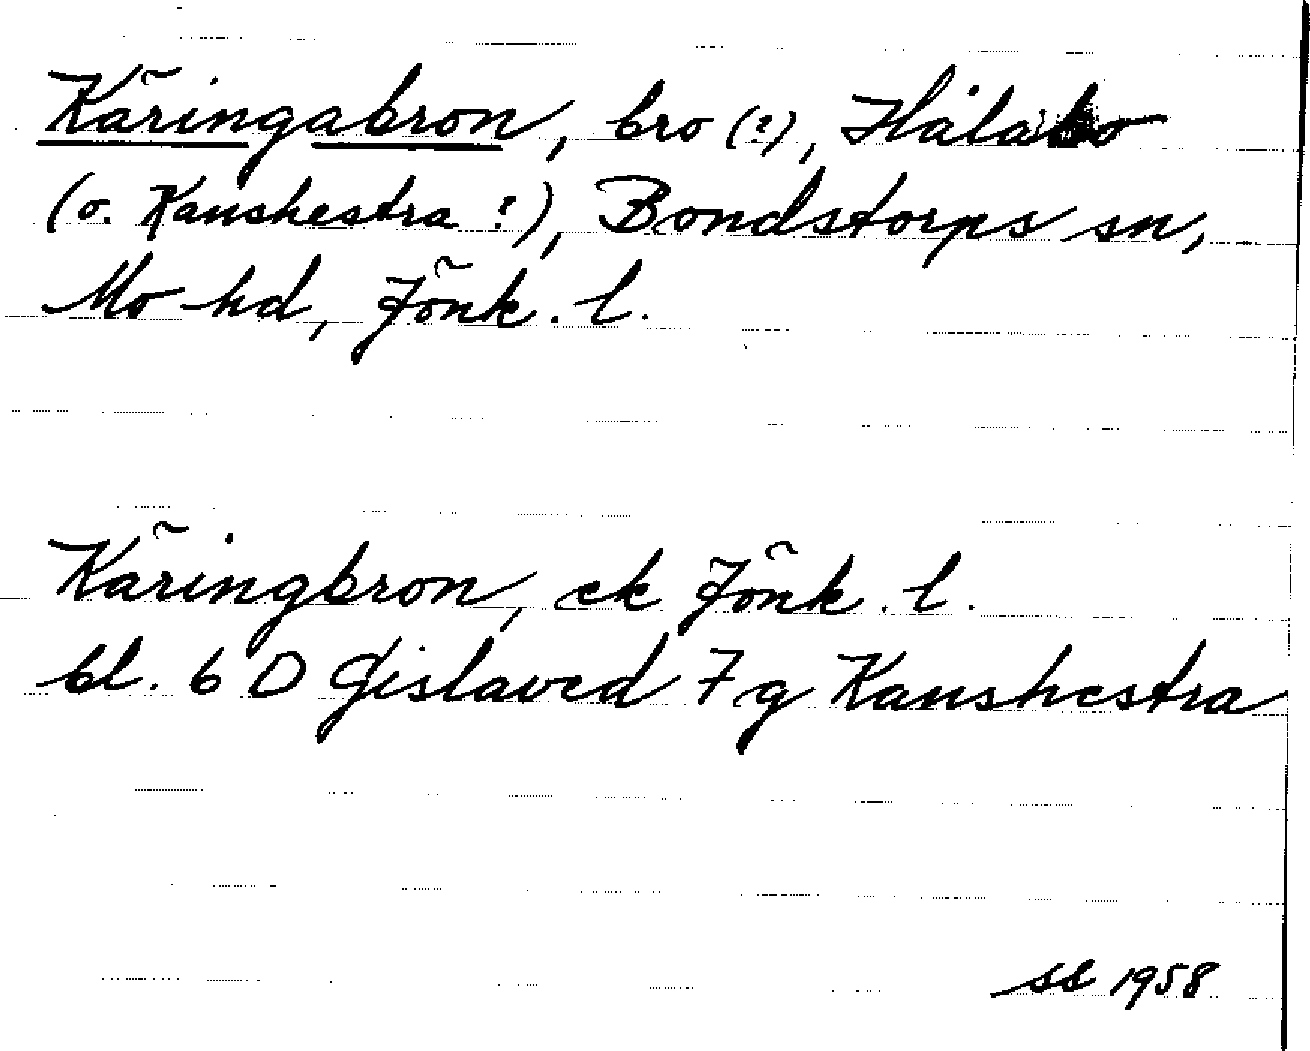 Käringabron, bro (?), Hålabo
(o. Kanshestra ?), Bondstorps sn,
Mo hd, Jönk. l.
Käringbron, ek Jönk. l.
bl. 6 D Gislaved 7 g Kanshestra
1958